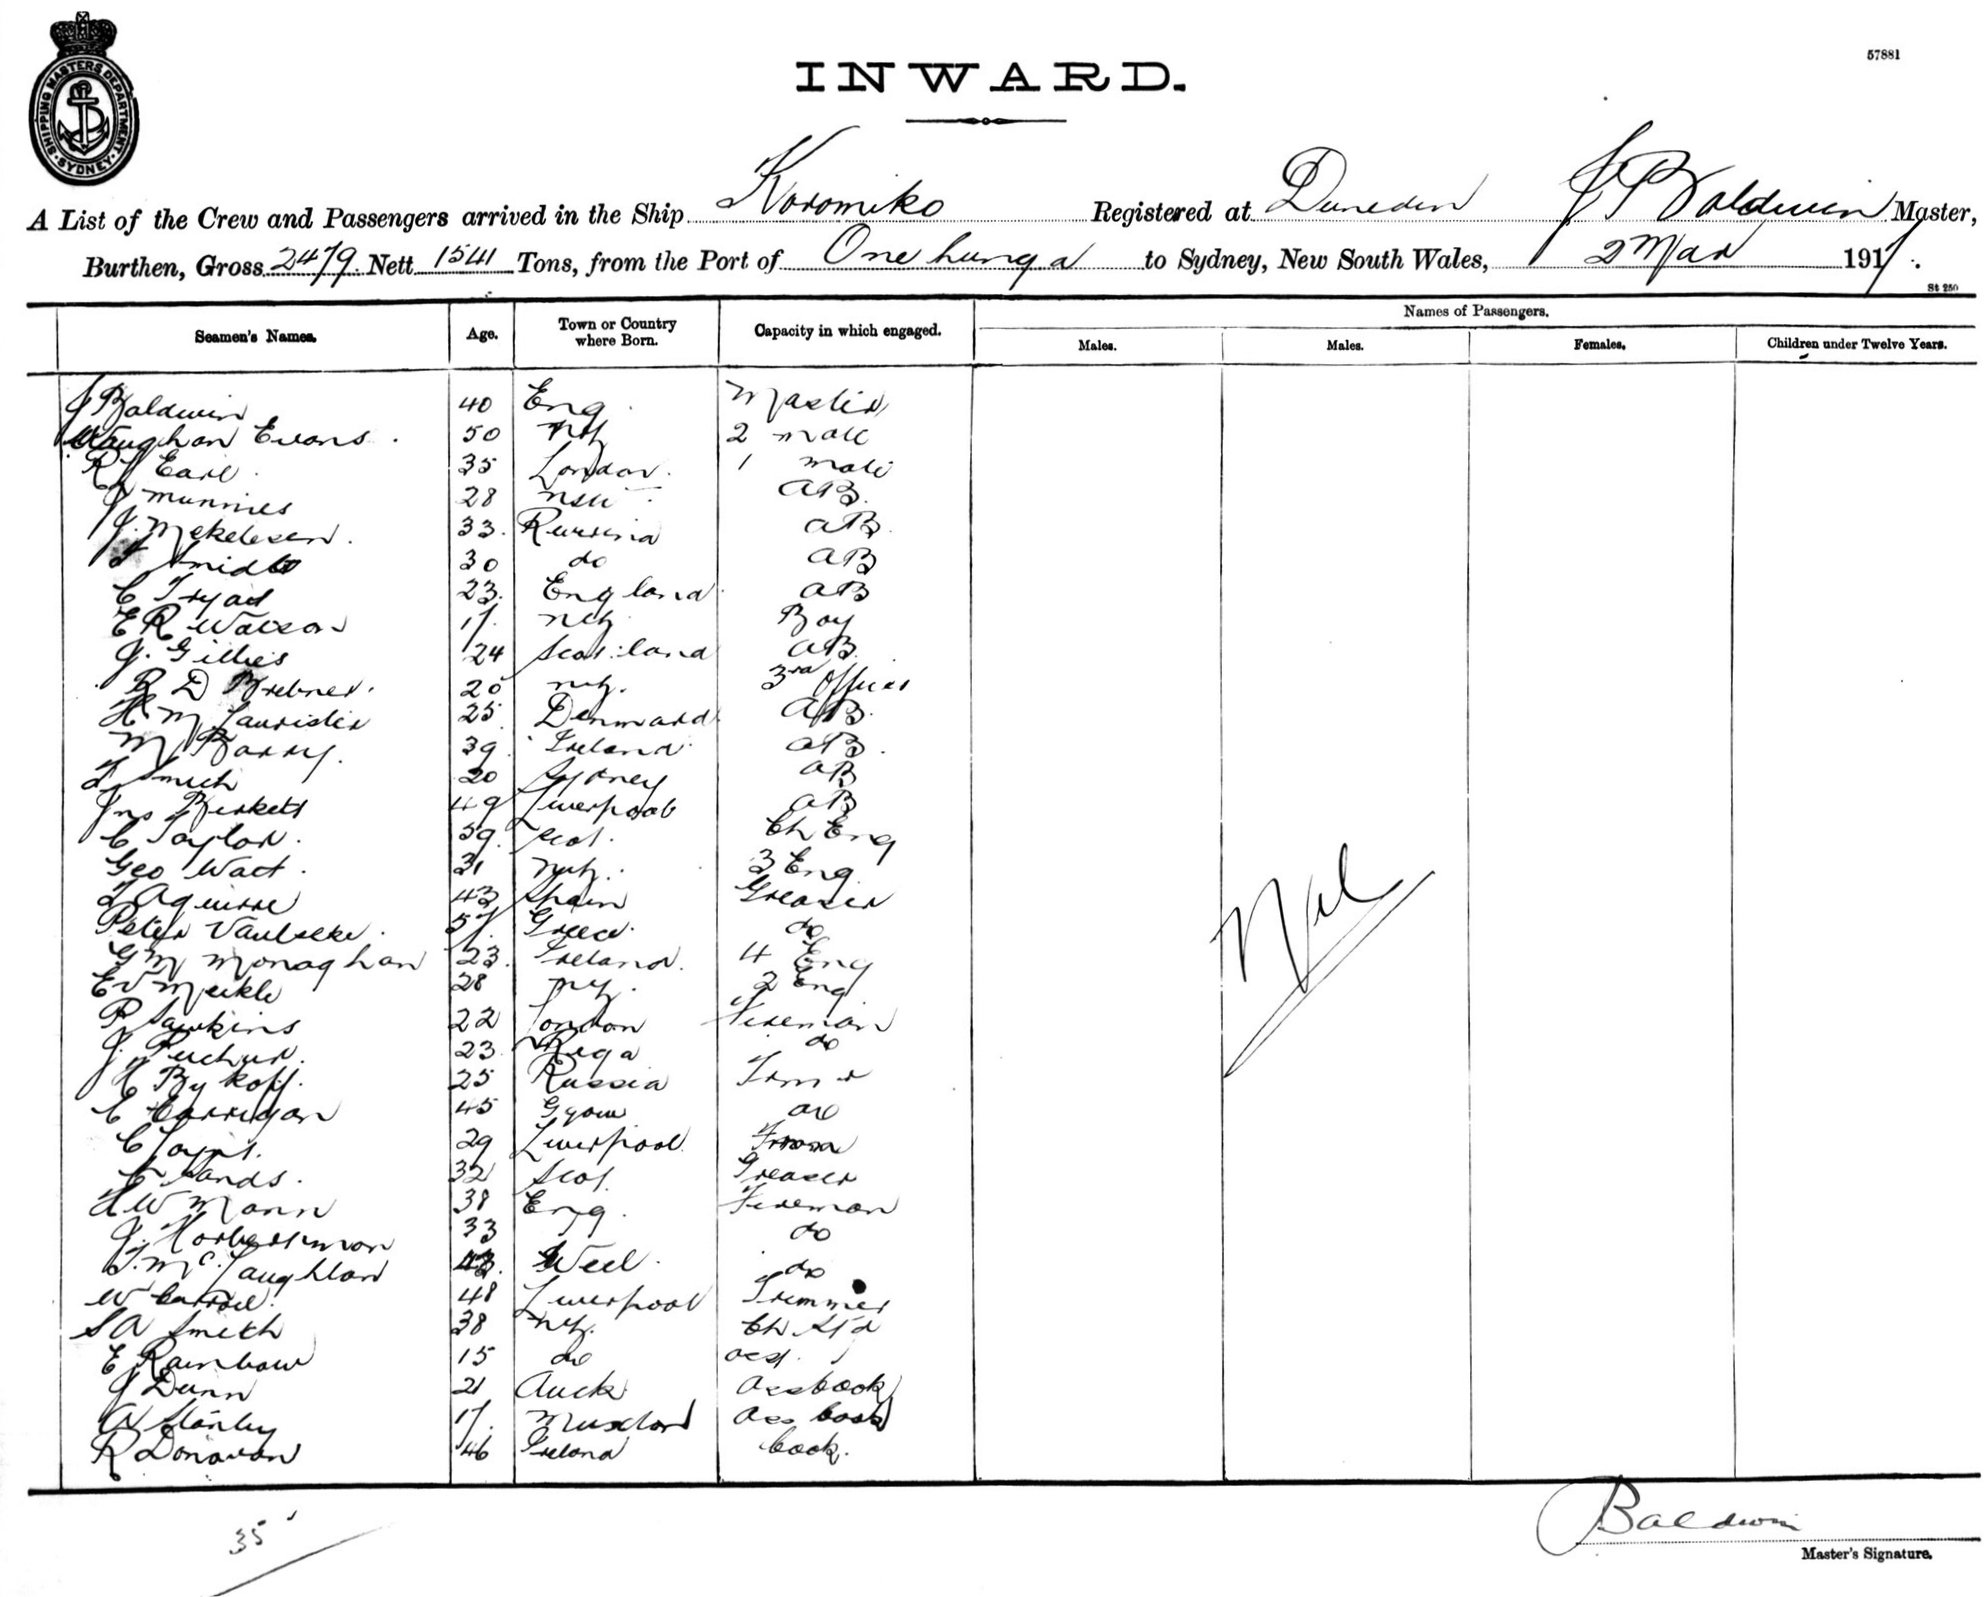 57881
INWARD.
SHIPPING MASTERS DEPARTMENT SYDNEY
A List of the Crew and Passengers arrived in the Ship Koromiko Registered at Dunedin J Baldwin Master,
Burthen, Gross 2479 Nett 1541 Tons, from the Port of Onehunga to Sydney, New South Wales, 2 Mar 1917.
St 250
Seamen's Names. Age. Town or Country where Born. Capacity in which engaged. Names of Passengers.
Males. Males. Females. Children under Twelve Years.
J Baldwin 40 Eng Master
Vaughan Evans 50 NZ 2 mate
R J Earl 35 London 1 mate
J 28 NSW AB
J. 33 Russia AB
30 do AB
C 23 England AB
E R Watson 17 NZ Boy
J. Gillies 24 Scotland AB
R D Brebner 20 NZ. 3rd Officer
H M 25 Denmark AB
M Barry 39 Ireland AB
T Smith 20 Sydney AB
Jno Birkett 49 Liverpool AB
C Taylor 59 Scot. Ch Eng
Geo Watt 31 NZ. 3 Eng
T Aguirre 43 Spain Greaser
Peter 57 Greece do
G M Monaghan 23 Ireland 4 Eng
E V Meikle 28 NZ. 2 Eng
R 22 London Fireman
J. 23 Riga do
Bykoff 25 Russia
C Corrigan 45 do
C 29 Liverpool
C Sands 32 Scot Greaser
H W Mann 38 Eng Fireman
J. 33 do
T. McLaughlan 43 do
W Carroll 48 Liverpool Trimmer
S A Smith 38 NZ. Ch Std
E Rainbow 15 do
J Dunn 21 Auck Ass cook
A Stanley 17 Ass cook
R Donovan 46 Ireland Cook.
Nil
35
Baldwin
Master's Signature.